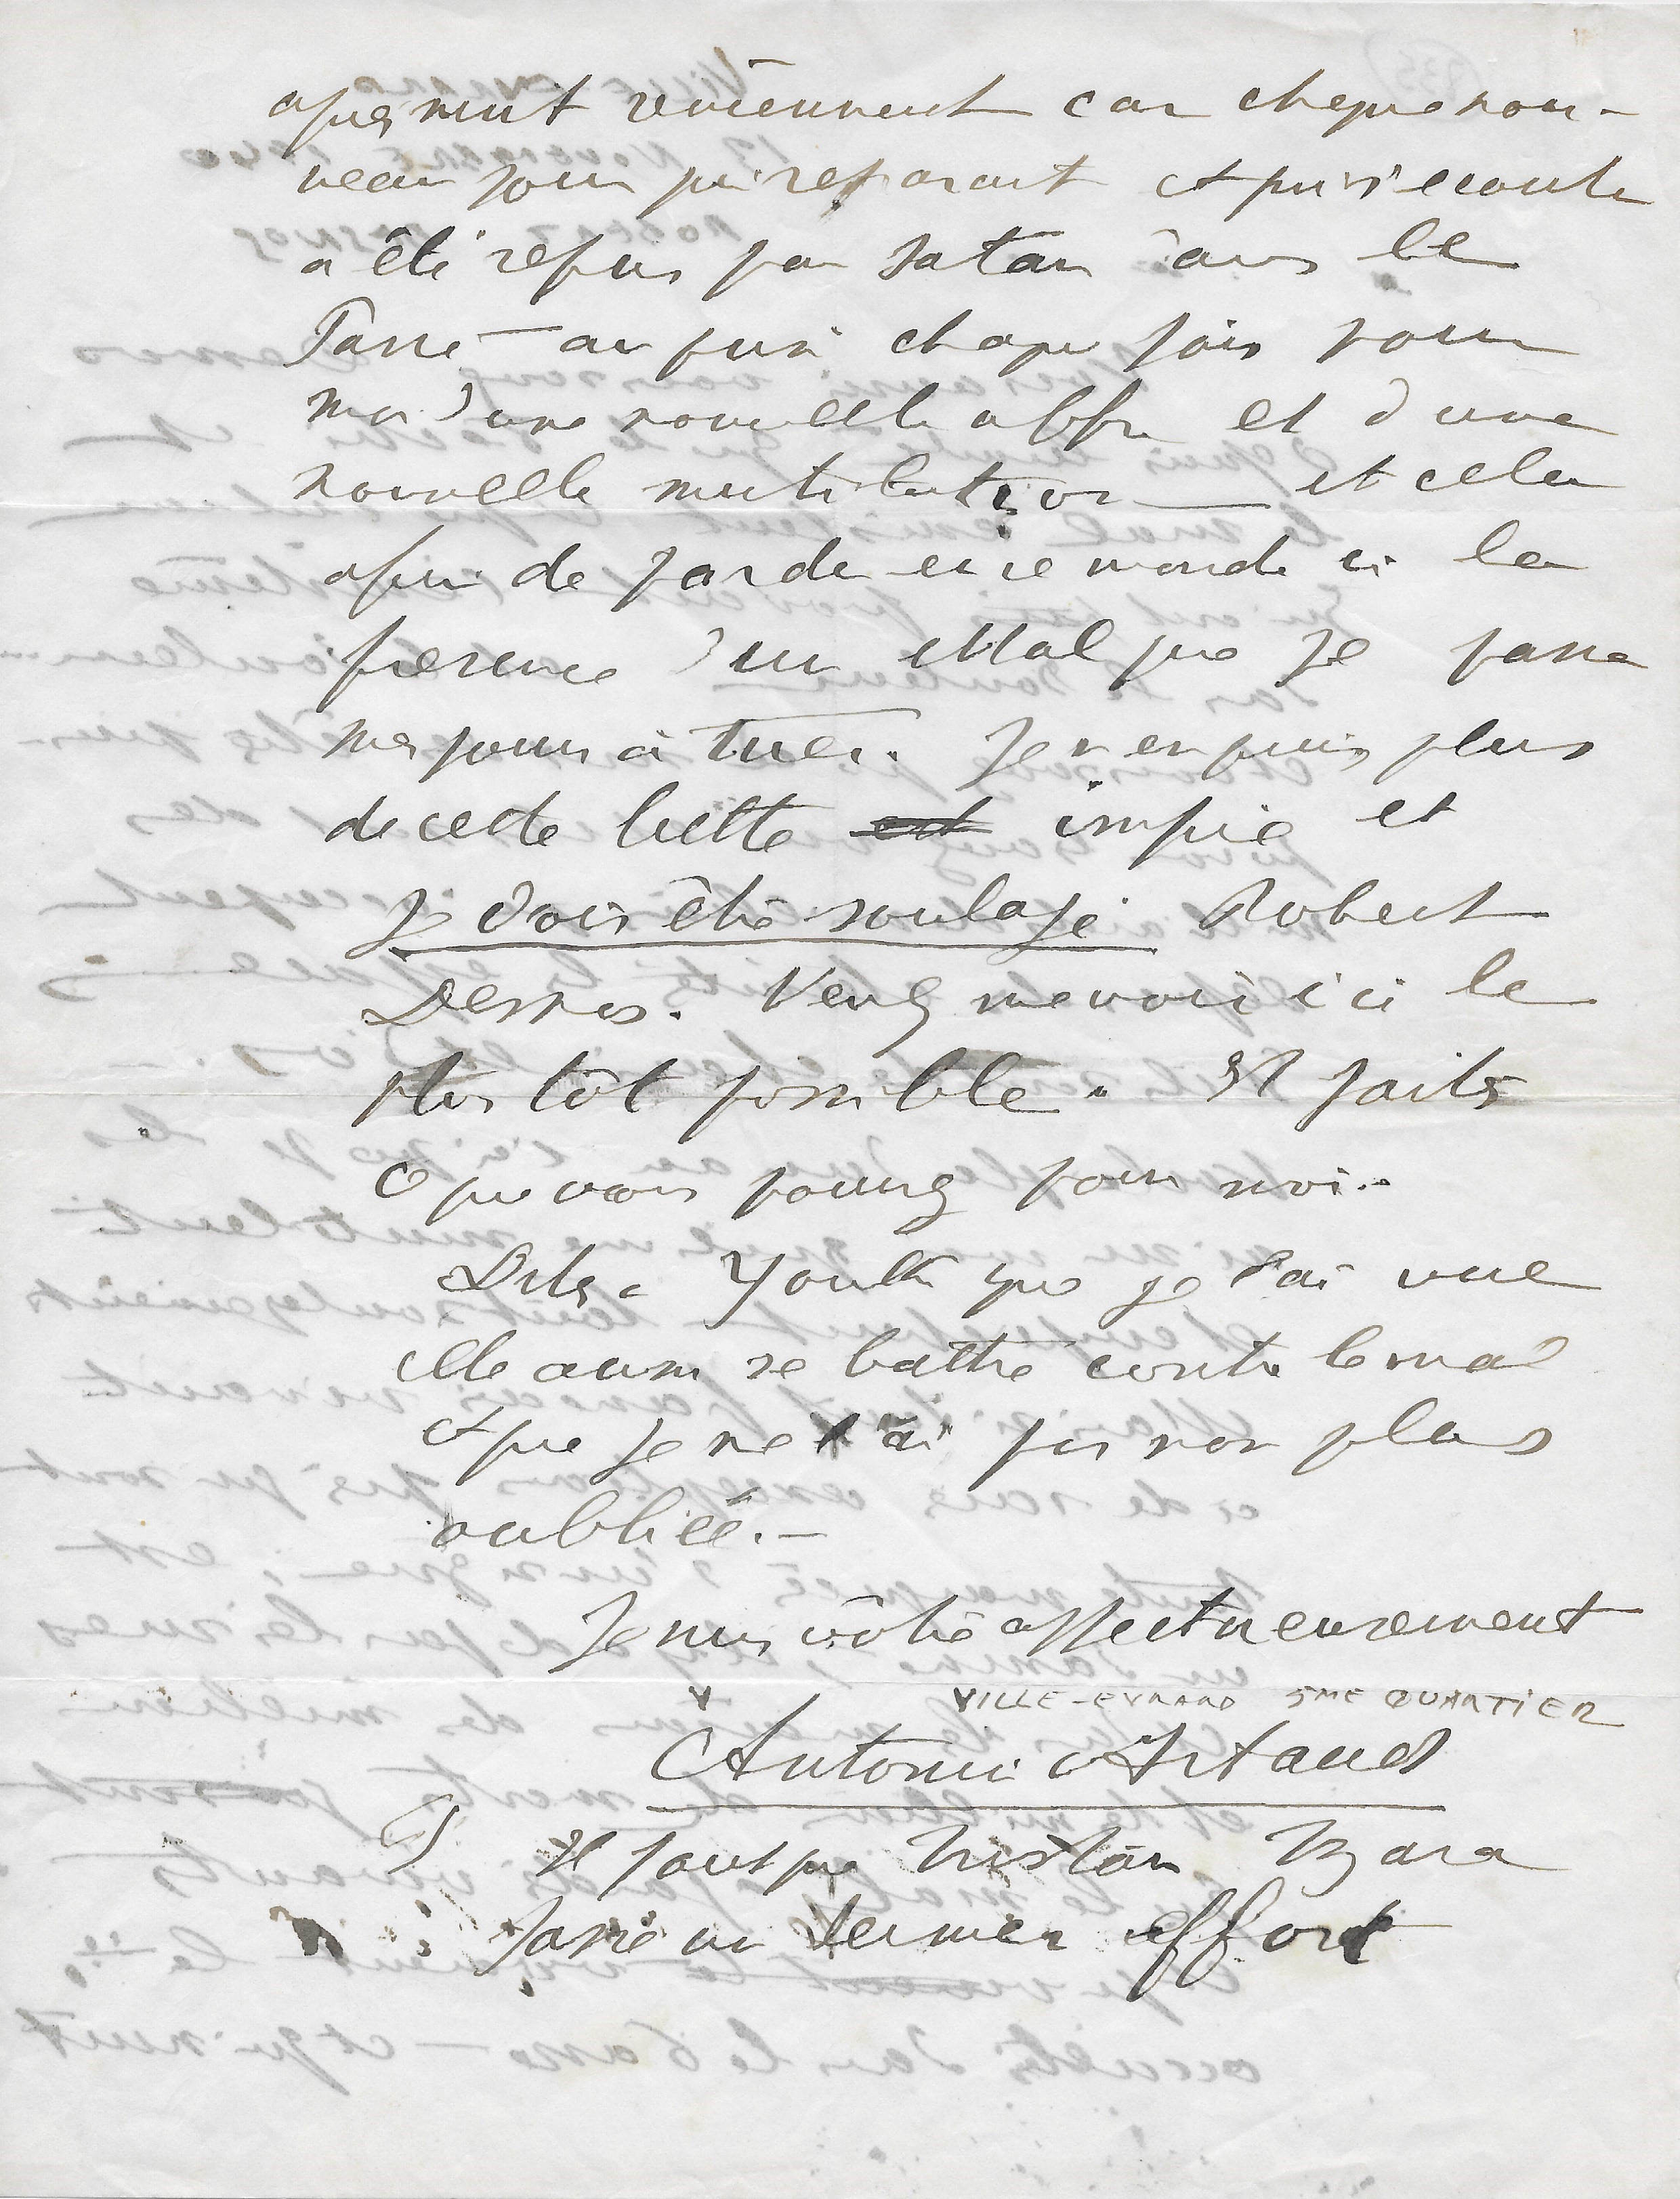 après nuit reviennent car chaque nou-
veau jour qui reparait et qui s'écoule
a été repris par Satan dans le
Passé — au prix chaque fois pour
moi d'une nouvelle affre et d'une
nouvelle mutilation — et cela
afin de garder en ce monde ci la
présence d'un Mal que je passe
mes jours à tuer. Je n'en puis plus
de cette lutte est impie et
je dois être soulagé Robert
Desnos. Venez me voir ici le
plus tôt possible. Et faites
ce que vous pouvez pour moi.
Dites à Youki que je l'ai vue
elle aussi se battre contre le mal
et que je ne l'ai pas non plus
oubliée. —
Je suis vôtre affectueusement
VILLE-EVRARD 5ME QUARTIER
Antonin Artaud
Il faut que Tristan Tzara
fasse un dernier effort